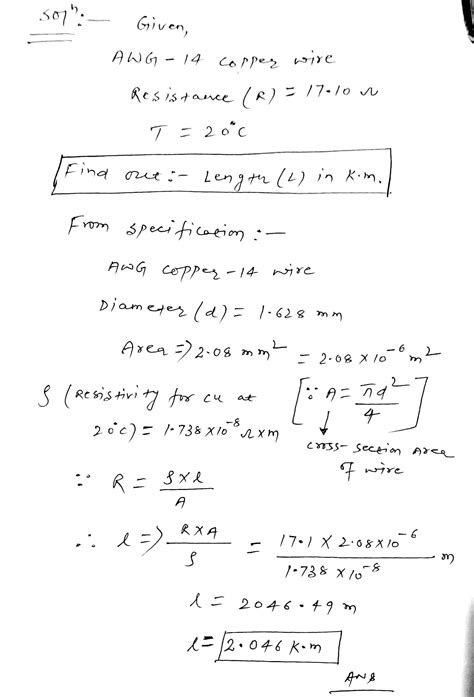 Solⁿ:—
Given,
AWG - 14 copper wire
Resistance (R) = 17.10 Ω
T = 20°C
Find out :- Length (L) in K.m.
From specification :—
AWG copper - 14 wire
Diameter (d) = 1.628 mm
Area => 2.08 mm² = 2.08 × 10⁻⁶ m²
ρ (Resistivity for cu at 20°c) = 1.738 × 10⁻⁸ Ω × m
[∵ A = πd²/4]
↓
cross-section Area
of wire
∵ R = ρ×l/A
∴ l => R×A/ρ = 17.1 × 2.08×10⁻⁶/1.738 × 10⁻⁸ m
l = 2046.49 m
l = 2.046 K.m
Ans